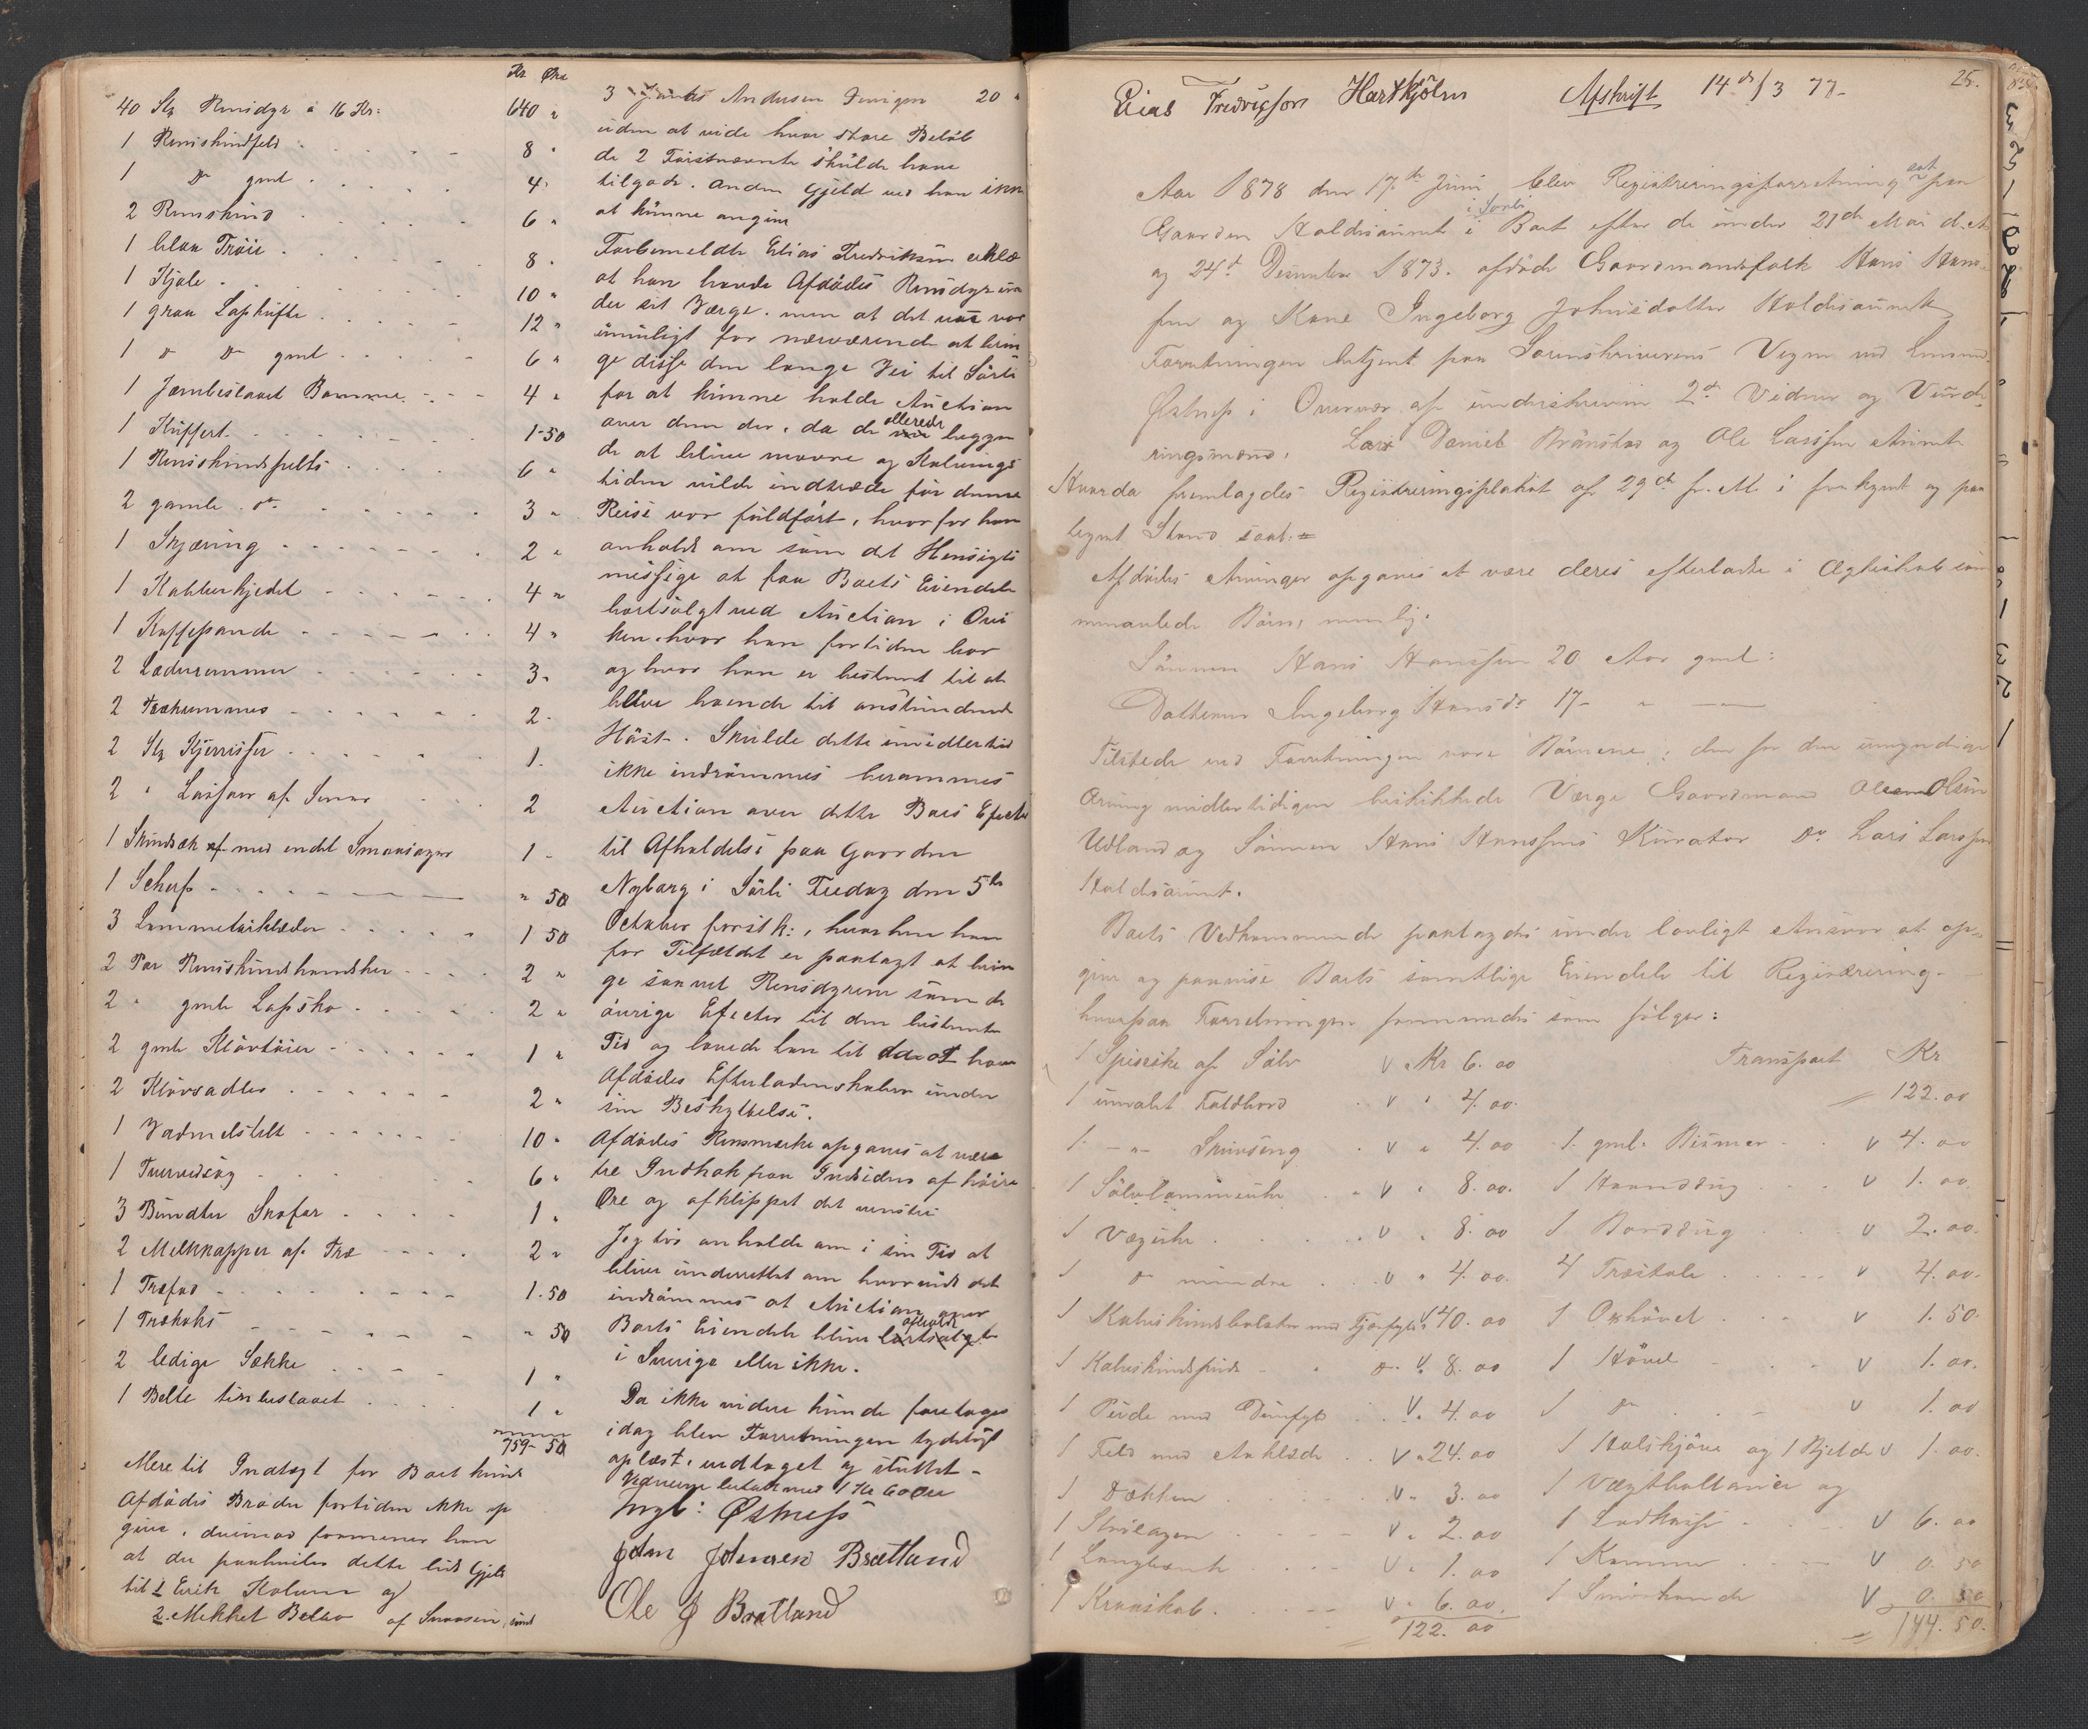 Kr Øre
40 Stk Rensdyr a 16 Kr: 640 "
1 Renskindfeld 8 "
1 Do gml 4 "
2 Renskind 6 "
1 blaa Trøie 8 "
1 Kjole 10 "
1 graa Lapkufte 12 "
1 do Do gml 6 "
1 Jernbeslaaet Bomme 4 "
1 Kuffert 1-50
1 Renskindspelts 6 "
2 gamle do 3 "
1 Skjæring 2 "
1 Kobberkjedel 4 "
1 Kaffepande 4 "
2 Læderremmer 3 "
2 Trærummes 2 "
2 Stk Kjerrisser 1 "
2 " Lassoer af Sener 2
1 Skindsæk med endel Smaasager 1 -
1 Scherf " 50
3 Lommetørklæder 1 50
2 Par Renskindshandsker 2 "
2 " gmle Lapsko 2 "
2 gmle Kløvtøier 1 "
2 Kløvsadler 2 "
1 Vadmelstelt 10 "
1 Tverredsag 6 "
3 Bundter Skofar 1 "
2 Melkkopper af Træ 2 "
1 Træfad 1-50
1 Trækoks " 50
2 ledige Sække 1 "
1 Belte tinbeslaaet 1 "
759-50
Mere til Indtægt for Boet kunde
Afdødes Broder fortiden ikke op
give, derimod formener han
at der paahviler dette lidt Gjeld
til 1 Erik Holum og
2. Mekkel Belbo af Snaasen, samt
3 Andersen 20 "
uden at vide hvor store Beløb
de 2 Førstnævnte skulde have
tilgode. Anden Gjeld ved han ikke
at kunne angive
Forbemeldte Elias Fredriksen erklæ
at han havde Afdødes Rensdyr un
der sit Værge, men at det var
umuligt for nærværende at brin
ge disse den lange Vei til Sørli
for at kunne holde Auction
over dem der, da de allerede begyn
de at blive magre og Kalvings
tiden vilde indtræde før denne
Reise var fuldført, hvorfor han
anholdt om som det Hensigts
mæssige at faa Boets Eiendele
bortsolgt ved Auction i Ovi
ken, hvor han fortiden bor
og hvor han er bestemt til at
blive boende til anstundende
Høst. Skulde dette imidlertid
ikke indrømmes berammes
Auction over dette Boes Efecter
til Afholdelse paa Gaarden
Nyborg i Sørli Tirsdag den 5te
October førstk:, hvorhen han
for Tilfældet er paalagt at brin
ge saavel Rensdyrene som de
øvrige Efecter til den bestemte
Tid og lovede han til da at have
Afdødes Efterladenskaber under
sin Beskyttelse.
Afdødes Rensmærke opgaves at være
tre Indhak paa Indsiden af høire
Øre og afklippet det venstre
Jeg tør anholde om i sin Tid at
blive underrettet om hvorvidt det
indrømmes at Auction over
Boets Eiendele bliver afholdt bortsolgt
i Sverige eller ikke.
Da ikke videre kunde foretages
idag blev Forretningen tydeligt
oplæst, vedtaget og sluttet -
Vidnerne betalt med 1 Kr 60 Øre
Ingb: Østnefs
John Johnsen Bratland
Ole J Bratland
Elias Fredrigsson Hartkjølen Afskrift 14de/3 77- 25.
Aar 1878 den 17de Juni blev Registreringsforretning sat paa
i Sørli
Gaarden Holdisaunet i Boet efter de under 21de Mai d.A.
og 24de December 1873 afdøde Gaardmandsfolk Hans Hans-
sen og Kone Ingeborg Johnsdatter Holdisaunet
Forretningen betjent paa Sorenskriverens Vegne ved Lensmd.
Østnefs i Overvær af underskrevne 2de Vidner og Vurde-
ringsmænd, Lars Daniel Brønstad og Ole Larssen Aunet
Hvorda fremlagdes Registreringsplakat af 29de f. M. i forkynt og paa
tegnet Stand saal:=
Afdødes Arvinger opgaves at være deres efterladte i Ægteskab sam
menavlede Børn, nemlig:
Sønnen Hans Hanssen 20 Aar gml:
Datteren Ingeborg Hansdr 17 - " -
Tilstede ved Forretningen vare Børnene; den for den umyndige
Arving midlertidigen beskikkede Værge Gaardmand Ole Olsen
Udland og Sønnen Hans Hanssens Kurator Do Lars Larssen
Holdisaunet.
Boets Vedkommende paalagdes under lovligt Ansvar at op-
give og paavise Boets samtlige Eiendele til Registrering -
hvorpaa Forretningen fremmedes som følger:
1 Spiseske af Sølv v Kr 6.00
1 umalet Foldbord v " 4.00
1 - " - Skuvseng v " 4.00
1 Sølvlommeuhr v " 8.00
1 Væguhr v " 8.00
1 do mindre v " 4.00
1 Kalveskindsbolster med Fjærfyld v 40.00
1 Kalveskindspude do v 8.00
1 Pude med Duunfyld v 4.00
1 Feld med Aaklæde v " 24.00
1 Dækken v " 3.00
1 v " 2.00
1 Langbænk v " 1.00
1 Kraaskab v " 6.00
122.00
Transport Kr
122.00
1 gml. Bismer v 4.00
1 Haanddug v 1.00
1 Borddug v 2.00
4 Træstole v 4.00
1 Oxhøvel v 1.50
1 Høvel v 1.00
1 Do v 1.00
1 Halskjøve og 1 Bjelde v 1.00
1 Vægtbaltanier og
1 v 6.00
1 Kamme v 0.50
1 v 0.50
144.50.